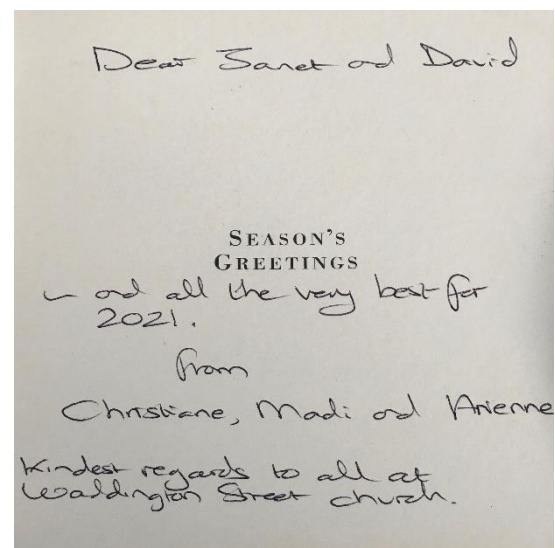 Dear Janet and David
SEASON'S
GREETINGS
– and all the very best for
2021.
from
Christiane, Madi and Arienne
Kindest regards to all at
Waddington Street church.